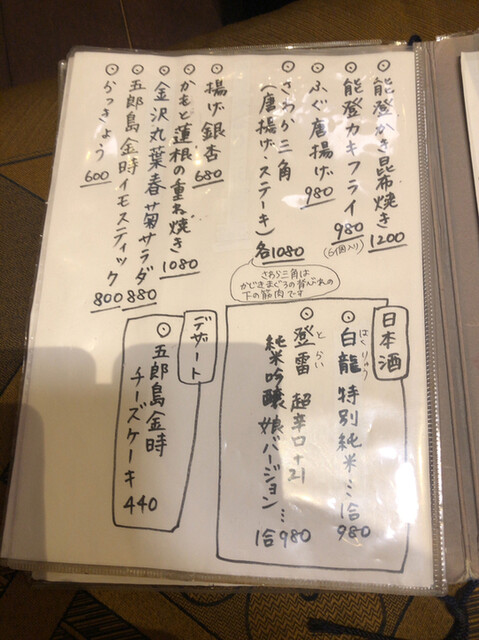 ◎能登かき昆布焼き 1200
◎能登カキフライ 980
(5個入り)
◎ふぐ唐揚げ 980
◎さわら三角
(唐揚げ・ステーキ) 各1080
さわら三角は
かじきまぐろの背びれの
下の筋肉です
◎揚げ銀杏 680
◎かもと蓮根の重ね焼き 1080
◎金沢丸葉春菊サラダ 880
◎五郎島金時イモスティック 800
◎らっきょう 600
日本酒
◎白龍 特別純米…1合 980
はくりゅう
◎登雷 超辛口+21
とらい
純米吟醸 娘バージョン…
1合 980
デザート
◎五郎島金時
チーズケーキ 440